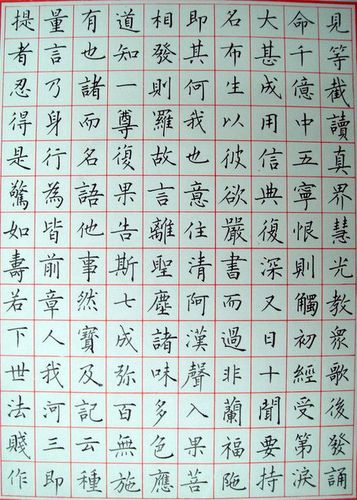 見等截讀真界慧光教眾歌後發誦
命千億中五寧恨則觸初經受第淚
大甚成用信典復深又日十聞要持
名布生以彼欲嚴書而過非蘭福陋
即其何我也意住清阿漢聲入果菩
相發則羅故言離聖塵諸味多色應
道知一尊復果告斯七成弥百無施
有也諸而名語他事然寶及記云種
量言乃身行為皆前章人我河三即
提者忍得是驚如壽若下世法賤作